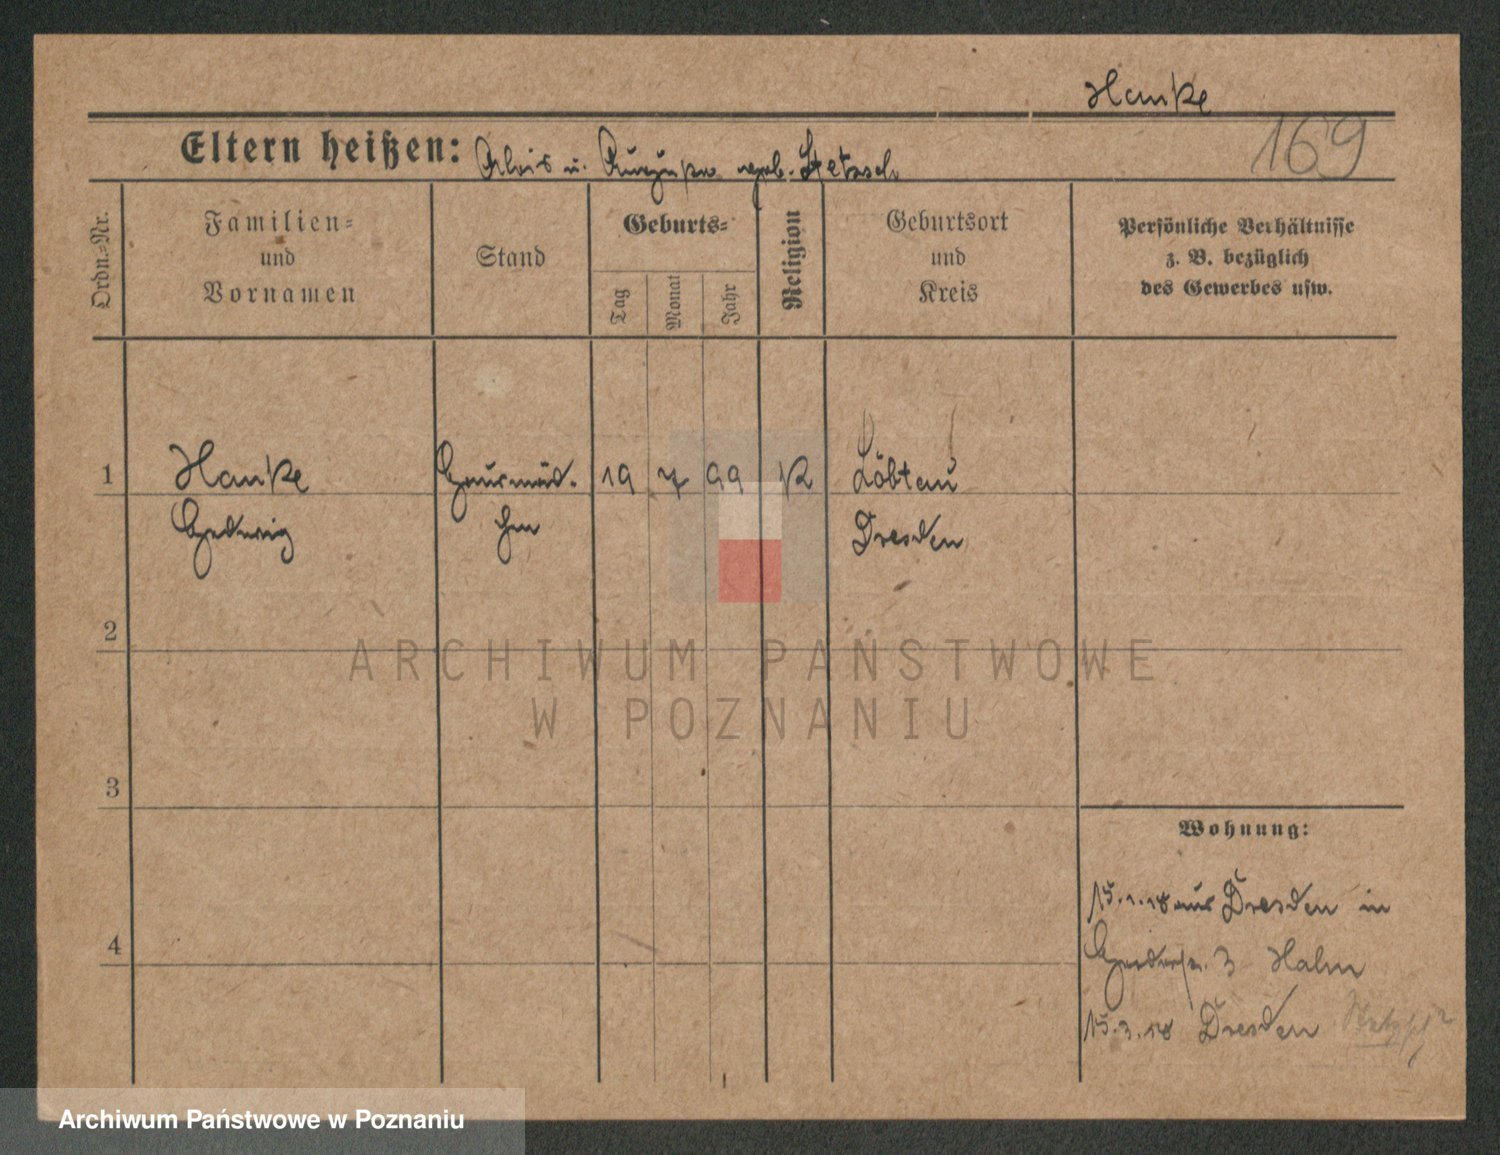 Hanke
169
Eltern heißen: Alois u. geb.
Ordn.=Nr.
Familien=
und
Vornamen
Stand
Geburts=
Tag
Monat
Jahr
Religion
Geburtsort
und
Kreis
Persönliche Verhältnisse
z. B. bezüglich
des Gewerbes usw.
1 Hanke Hausmäd- 19 7 99 K Löbtau
Hedwig chen Dresden
2
3
4
Wohnung:
15.1.18 aus Dresden in
3 Hahn
15.3.18 Dresden
ARCHIWUM PAŃSTWOWE
W POZNANIU
Archiwum Państwowe w Poznaniu